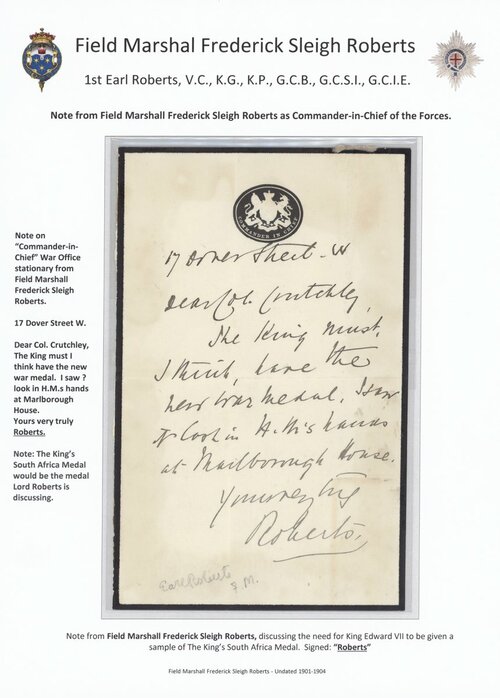 Field Marshal Frederick Sleigh Roberts
1st Earl Roberts, V.C., K.G., K.P., G.C.B., G.C.S.I., G.C.I.E.
Note from Field Marshall Frederick Sleigh Roberts as Commander-in-Chief of the Forces.
Note on
“Commander-in-
Chief” War Office
stationary from
Field Marshall
Frederick Sleigh
Roberts.
17 Dover Street W.
Dear Col. Crutchley,
The King must I
think have the new
war medal. I saw ?
look in H.M.s hands
at Marlborough
House.
Yours very truly
Roberts.
Note: The King’s
South Africa Medal
would be the medal
Lord Roberts is
discussing.
COMMANDER IN CHIEF
17 Dover Street. W
Dear Col. Crutchley,
The King must,
I think, have the
new war medal. I saw
look in H.M's hands
at Marlborough House.
Yours very truly
Roberts.
Earl Roberts
F. M.
Note from Field Marshall Frederick Sleigh Roberts, discussing the need for King Edward VII to be given a
sample of The King’s South Africa Medal. Signed: “Roberts”
Field Marshall Frederick Sleigh Roberts - Undated 1901-1904